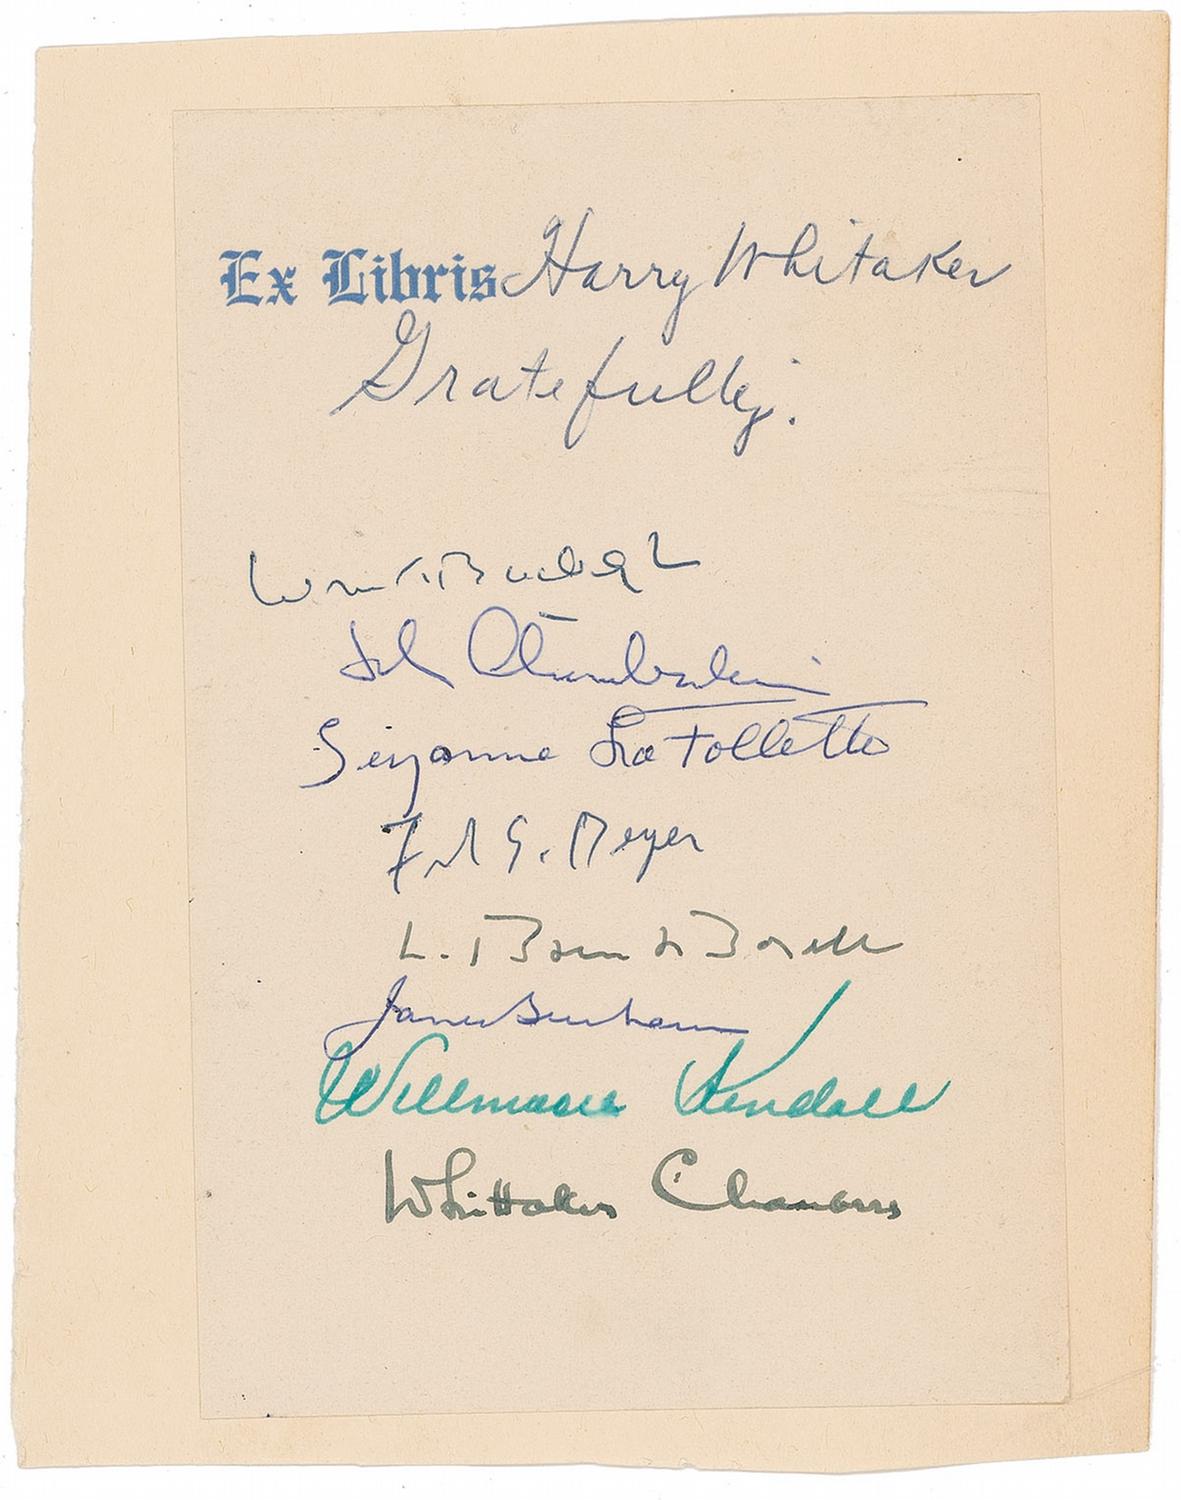 Ex Libris Harry Whitaker
Gratefully.
Wm F. Buckley
John Chamberlain
Suzanne La Follette
Frank S. Meyer
L. Brent Bozell
James Burnham
Willmoore Kendall
Whittaker Chambers